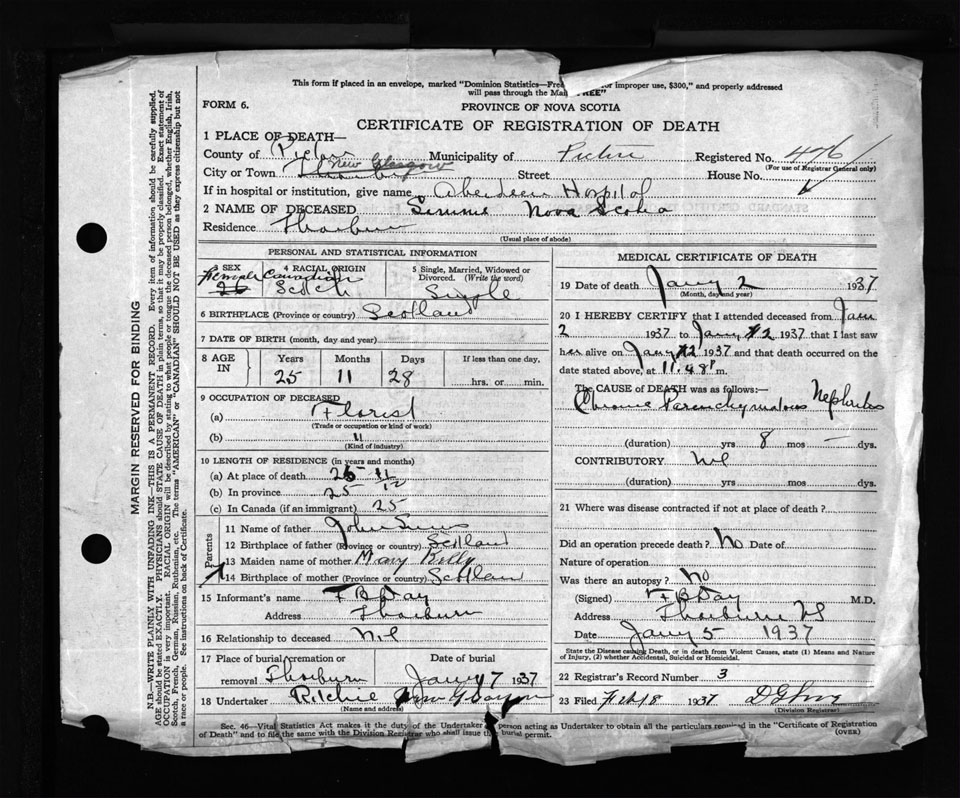 This form if placed in an envelope, marked "Dominion Statistics—Free for improper use, $300," and properly addressed
will pass through the Mail "FREE"
FORM 6.
PROVINCE OF NOVA SCOTIA
CERTIFICATE OF REGISTRATION OF DEATH
1 PLACE OF DEATH—
County of Pictou Municipality of Pictou Registered No. 476
(For use of Registrar General only)
City or Town Thorburn New Glasgow Street House No.
If in hospital or institution, give name Aberdeen Hospital
2 NAME OF DECEASED Nova Scotia
Residence Thorburn
(Usual place of abode)
PERSONAL AND STATISTICAL INFORMATION
SEX Female 26
4 RACIAL ORIGIN Canadian Scotch
5 Single, Married, Widowed or Divorced. (Write the word) Single
6 BIRTHPLACE (Province or country) Scotland
7 DATE OF BIRTH (month, day and year)
8 AGE IN Years Months Days If less than one day,
25 11 28 hrs. or min.
9 OCCUPATION OF DECEASED
(a) Florist
(Trade or occupation or kind of work)
(b) "
(Kind of industry)
10 LENGTH OF RESIDENCE (in years and months)
(a) At place of death
(b) In province 25
(c) In Canada (if an immigrant) 25
Parents
11 Name of father John
12 Birthplace of father (Province or country) Scotland
13 Maiden name of mother Mary
14 Birthplace of mother (Province or country) Scotland
15 Informant's name F B Day
Address Thorburn
16 Relationship to deceased Nil
17 Place of burial, cremation or removal Thorburn
Date of burial Jany 7 1937
18 Undertaker Ritchie
(Name and address)
MEDICAL CERTIFICATE OF DEATH
19 Date of death Jany 2 1937
(Month, day and year)
20 I HEREBY CERTIFY that I attended deceased from Jan
2 1937 to Jany 2 1937 that I last saw
her alive on Jany 2 1937 and that death occurred on the
date stated above, at 11.48 P m.
The CAUSE of DEATH was as follows:—
Chronic Parenchymatous Nephritis
(duration) yrs 8 mos — dys.
CONTRIBUTORY Nil
(duration) yrs. mos. dys.
21 Where was disease contracted if not at place of death?
Did an operation precede death? No Date of
Nature of operation
Was there an autopsy? No
(Signed) F B Day M.D.
Address Thorburn NS
Date Jany 5 1937
State the Disease causing Death, or in death from Violent Causes, state (1) Means and Nature
of Injury, (2) whether Accidental, Suicidal or Homicidal.
22 Registrar's Record Number 3
23 Filed Feb 18 1937
(Division Registrar)
Sec. 46—Vital Statistics Act makes it the duty of the Undertaker or person acting as Undertaker to obtain all the particulars required in the "Certificate of Registration
of Death" and to file the same with the Division Registrar who shall issue the burial permit.
(OVER)
MARGIN RESERVED FOR BINDING
N.B.—WRITE PLAINLY WITH UNFADING INK—THIS IS A PERMANENT RECORD. Every item of information should be carefully supplied.
AGE should be stated EXACTLY. PHYSICIANS should STATE CAUSE OF DEATH in plain terms, so that it may be properly classified. Exact statement of
OCCUPATION is very important. RACIAL ORIGIN will be described by stating to what people or tongue the deceased person belonged, whether English, Irish,
Scotch, French, German, Russian, Ruthenian, etc. The terms "AMERICAN" or "CANADIAN" SHOULD NOT BE USED as they express citizenship but not
a race or people. See instructions on back of Certificate.